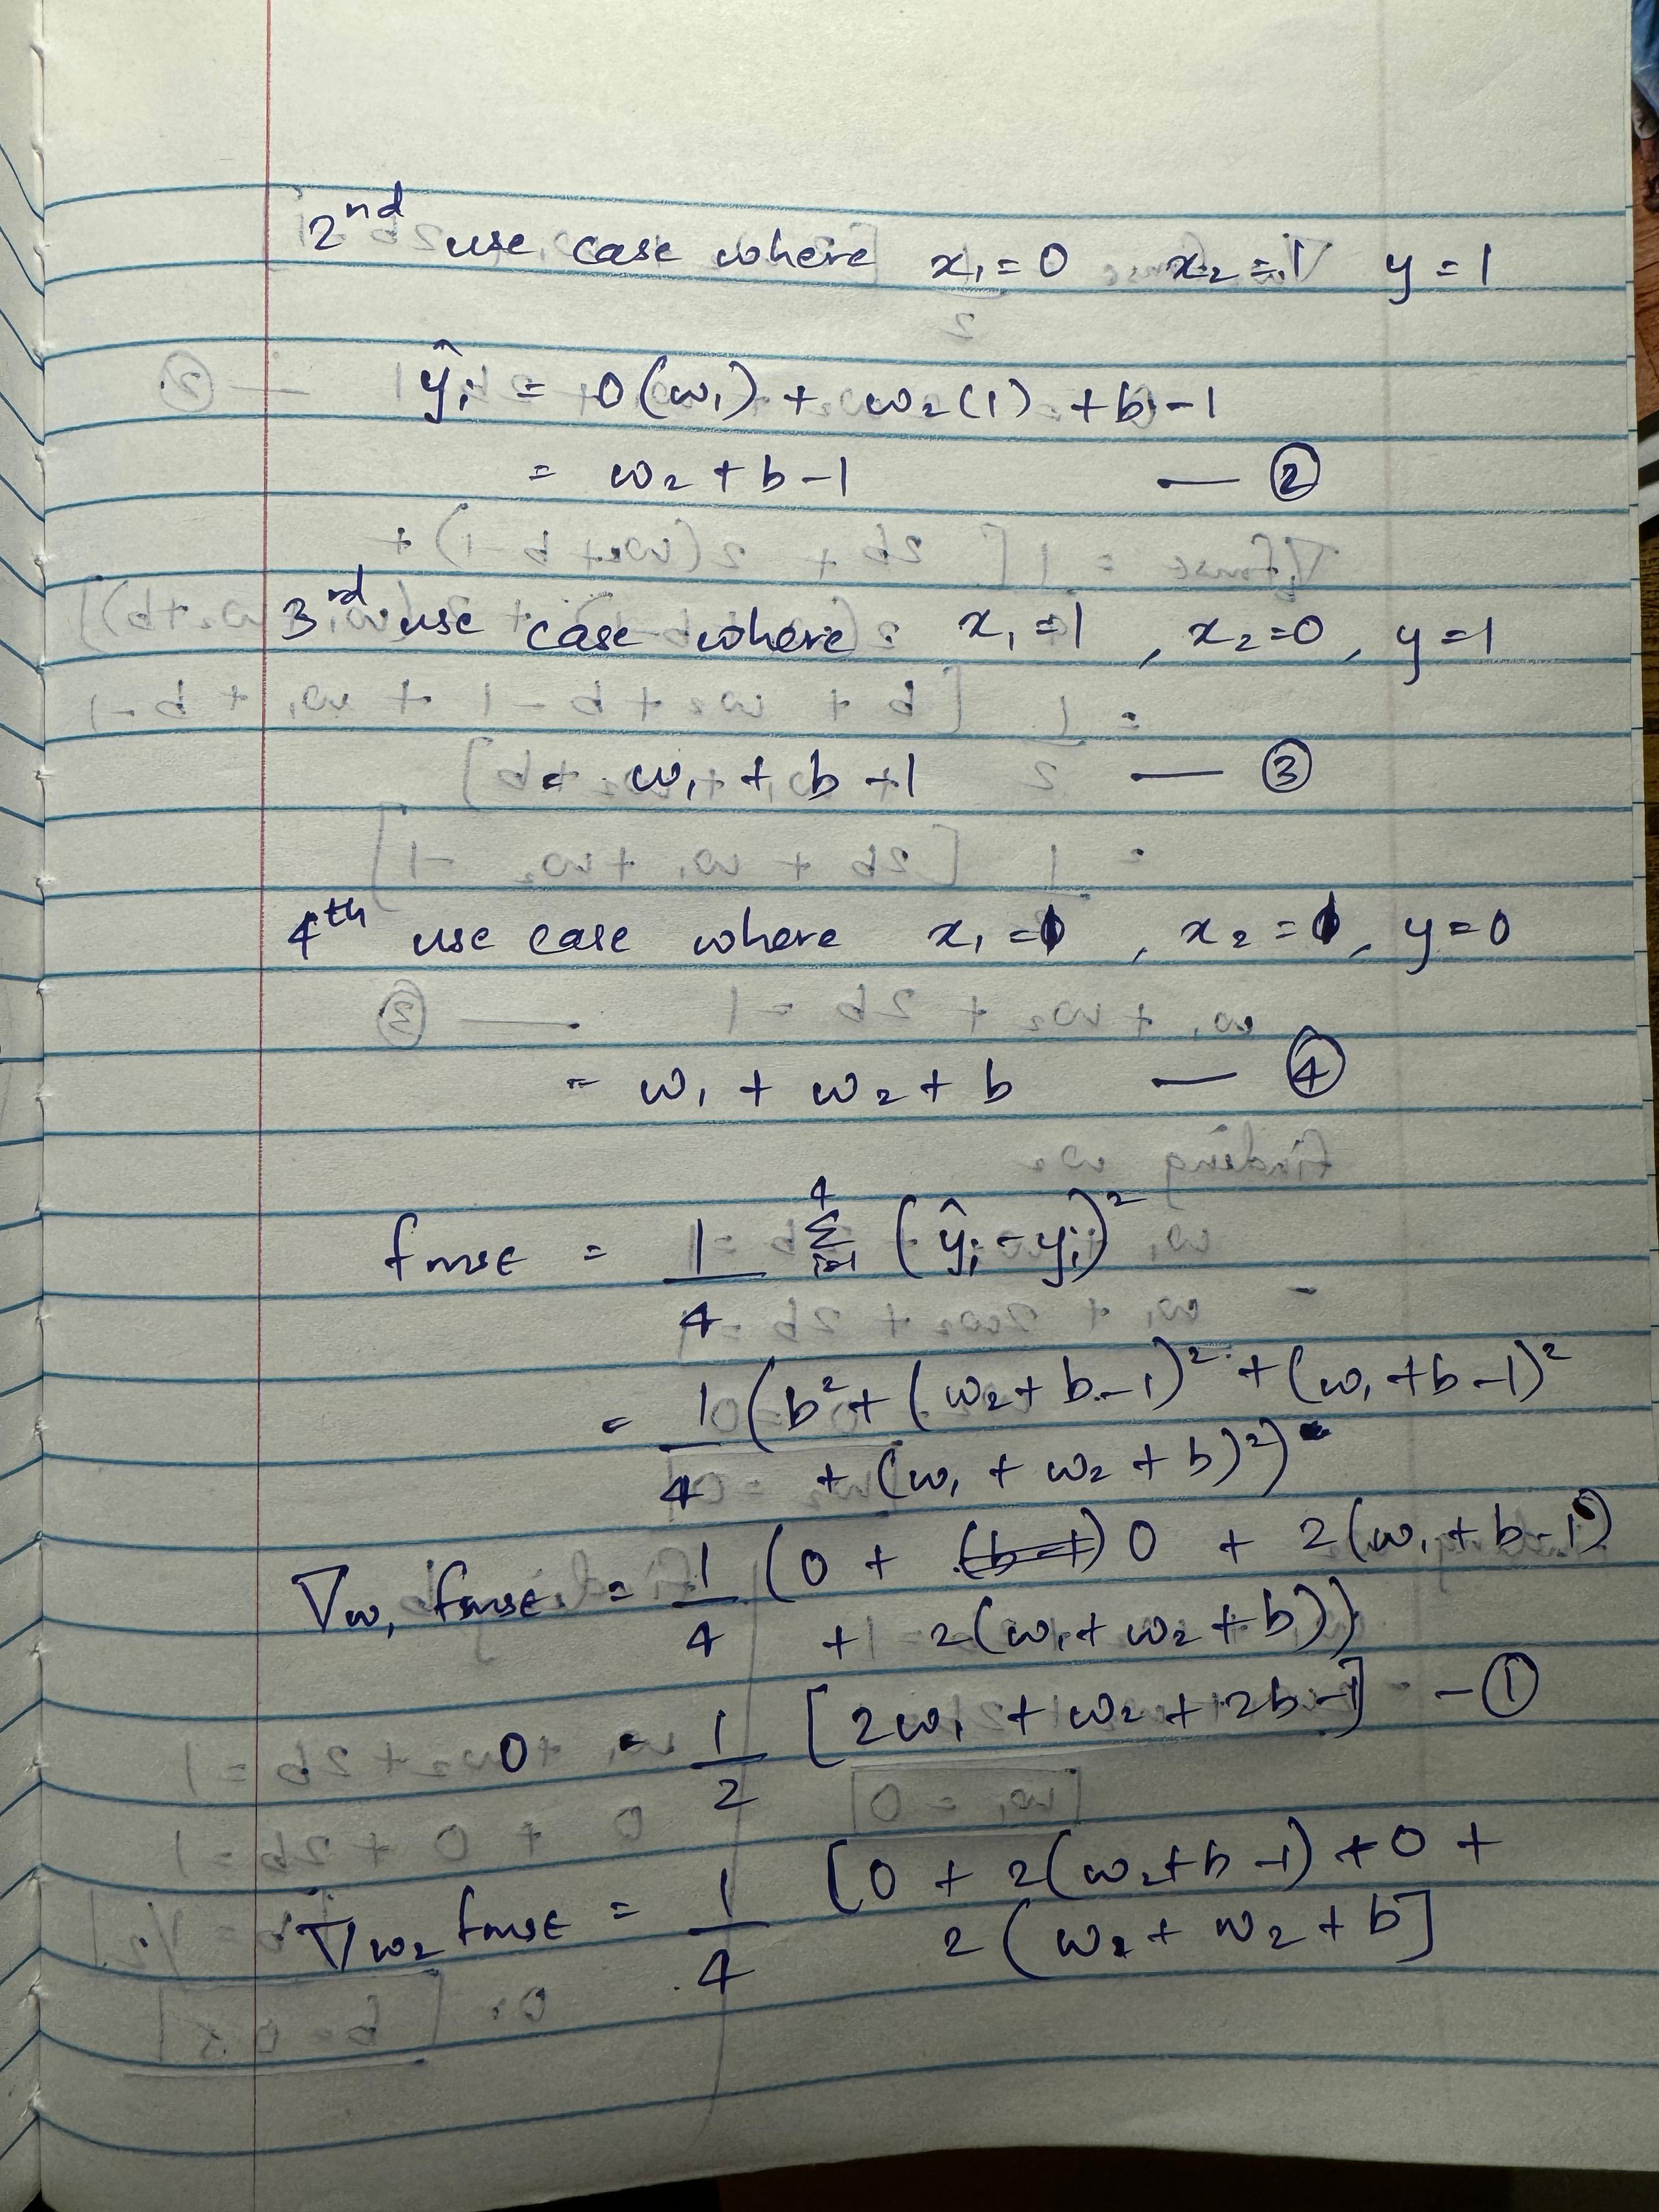 2nd use case where x₁ = 0 x₂ = 1 y = 1
ŷᵢ = 0(w₁) + w₂(1) + b - 1
= w₂ + b - 1 — ②
3rd use case where x₁ = 1, x₂ = 0, y = 1
= w₁ + b + 1 — ③
4th use case where x₁ = 1, x₂ = 1, y = 0
= w₁ + w₂ + b — ④
fmse = 1/4 Σᵢ₌₁⁴ (ŷᵢ - yᵢ)²
= 1/4 (b² + (w₂ + b - 1)² + (w₁ + b - 1)²
+ (w₁ + w₂ + b)²)
∇w₁ fmse = 1/4 (0 + 0 + 2(w₁ + b - 1)
+ 2(w₁ + w₂ + b))
0 = 1/2 [2w₁ + w₂ + 2b - 1] - ①
∇w₂ fmse = 1/4 [0 + 2(w₂ + b - 1) + 0 +
2(w₂ + w₂ + b]